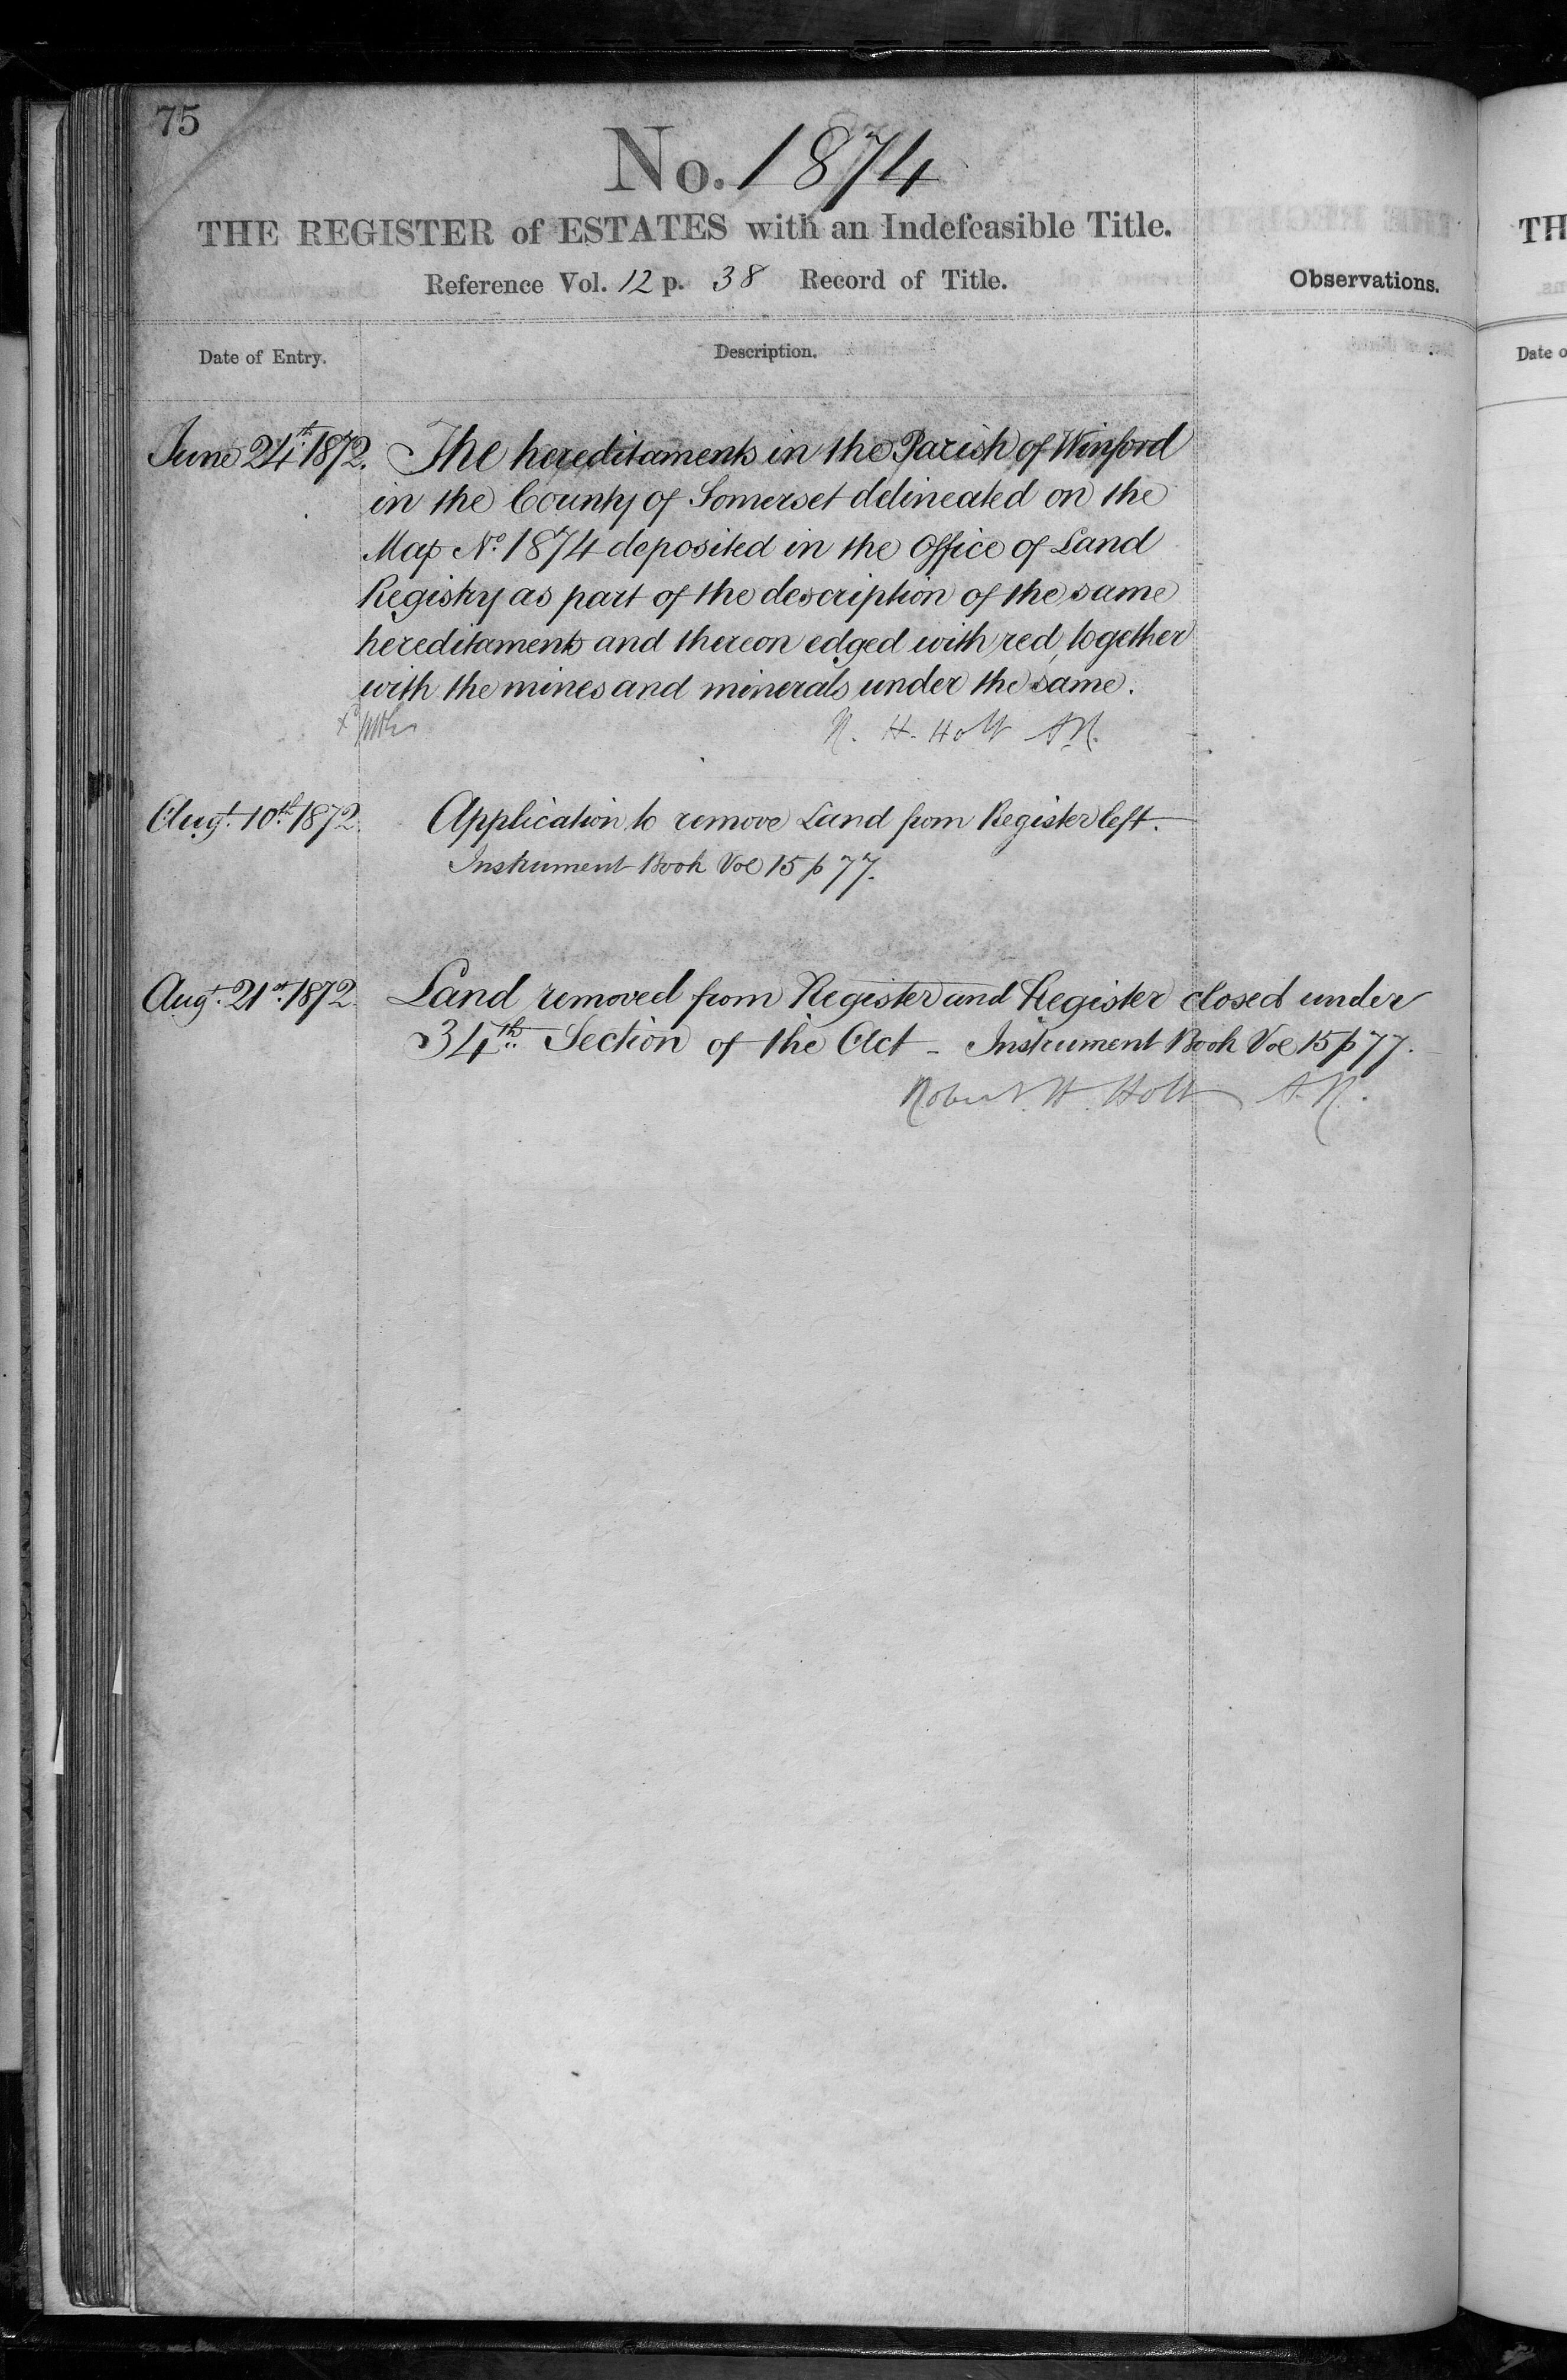 75
No. 1874
THE REGISTER of ESTATES with an Indefeasible Title.
Reference Vol. 12 p. 38 Record of Title.
Observations.
Date of Entry.
Description.
June 24th 1872. The hereditaments in the Parish of Winford
in the County of Somerset delineated on the
Map No. 1874 deposited in the Office of Land
Registry as part of the description of the same
hereditaments and thereon edged with red, together
with the mines and minerals under the same.
R. H. Holt A.R.
Augt. 10th 1872. Application to remove Land from Register left.
Instrument Book Vol 15 p 77.
Augt. 21st 1872. Land removed from Register and Register closed under
34th Section of the Act - Instrument Book Vol 15 p 77.
Robert. H. Holt A.R.
TH
Date o